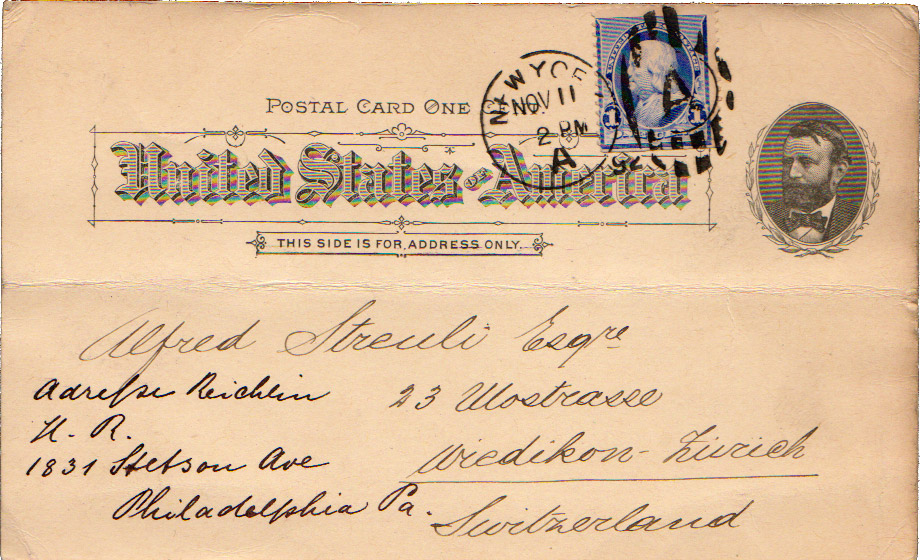 POSTAL CARD ONE
NEW YORK
NOV 11
2 PM
A
92
UNITED STATES POSTAGE
1 1
A
United States of America
THIS SIDE IS FOR ADDRESS ONLY.
Alfred Streuli Esqre
23 Utostrasse
Wiedikon-Zürich
Switzerland
Adresse Reichlin
H. R.
1831 Stetson Ave
Philadelphia Pa.